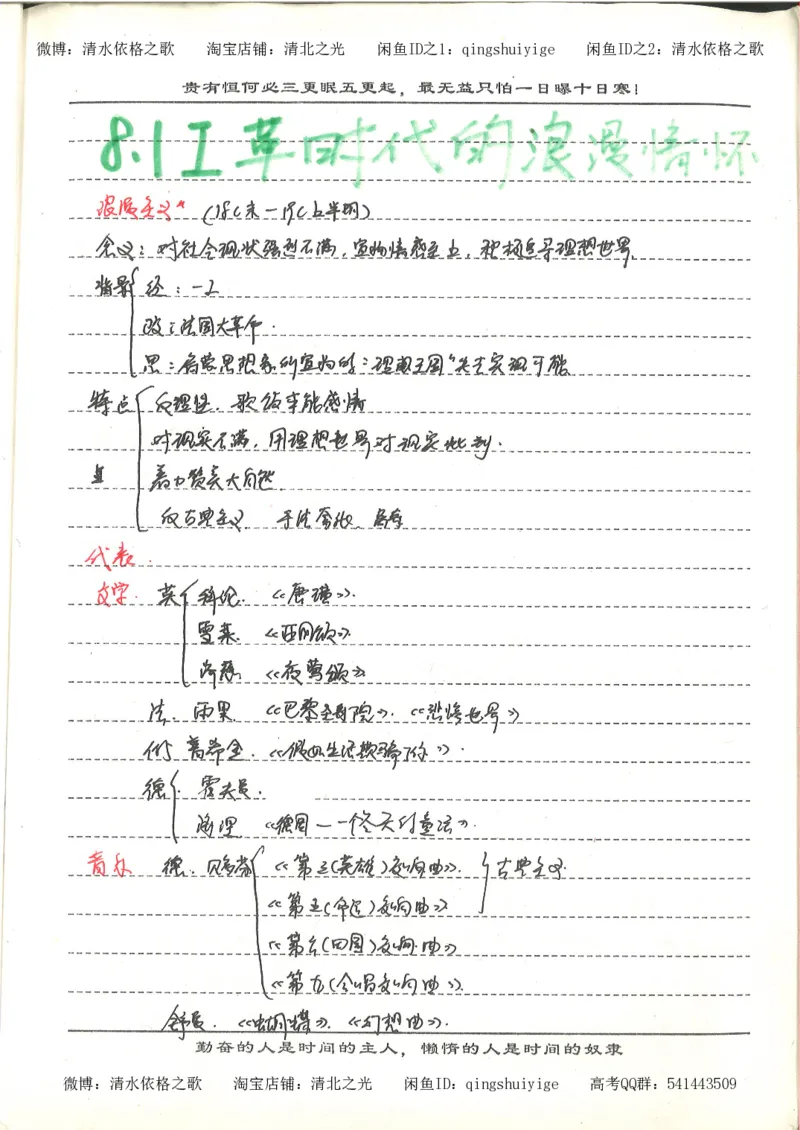 微博：清水依格之歌 淘宝店铺：清北之光 闲鱼ID之1：qingshuiyige 闲鱼ID之2：清水依格之歌
贵有恒何必三更眠五更起，最无益只怕一日曝十日寒！
8.1工革时代的浪漫情怀
浪漫主义* (18C末一19C上半期)
含义：对社会现状强烈不满，宣扬情感至上，积极追寻理想世界。
背景 经：一工
政：法国大革命.
思：启蒙思想家所宣扬的：理想王国"失去实现可能
特点 反理性. 歌颂本能感情
对现实不满，用理想世界对现实批判.
着力赞美大自然.
反古典主义
代表.
文学. 英 科伦. 《唐璜》.
雪莱. 《西风颂》.
济慈. 《夜莺颂》
法. 雨果. 《巴黎圣母院》. 《悲惨世界》
俄 普希金. 《假如生活欺骗了你》.
德
海涅 《德国一一个冬天的童话》.
音乐 德. 贝多芬 《第三(英雄)交响曲》. 古典主义.
《第五(命运)交响曲》
《第六(田园)交响曲》
《第九(合唱交响曲》.
《蝴蝶》. 《幻想曲》.
勤奋的人是时间的主人，懒惰的人是时间的奴隶
微博：清水依格之歌 淘宝店铺：清北之光 闲鱼ID：qingshuiyige 高考QQ群：541443509